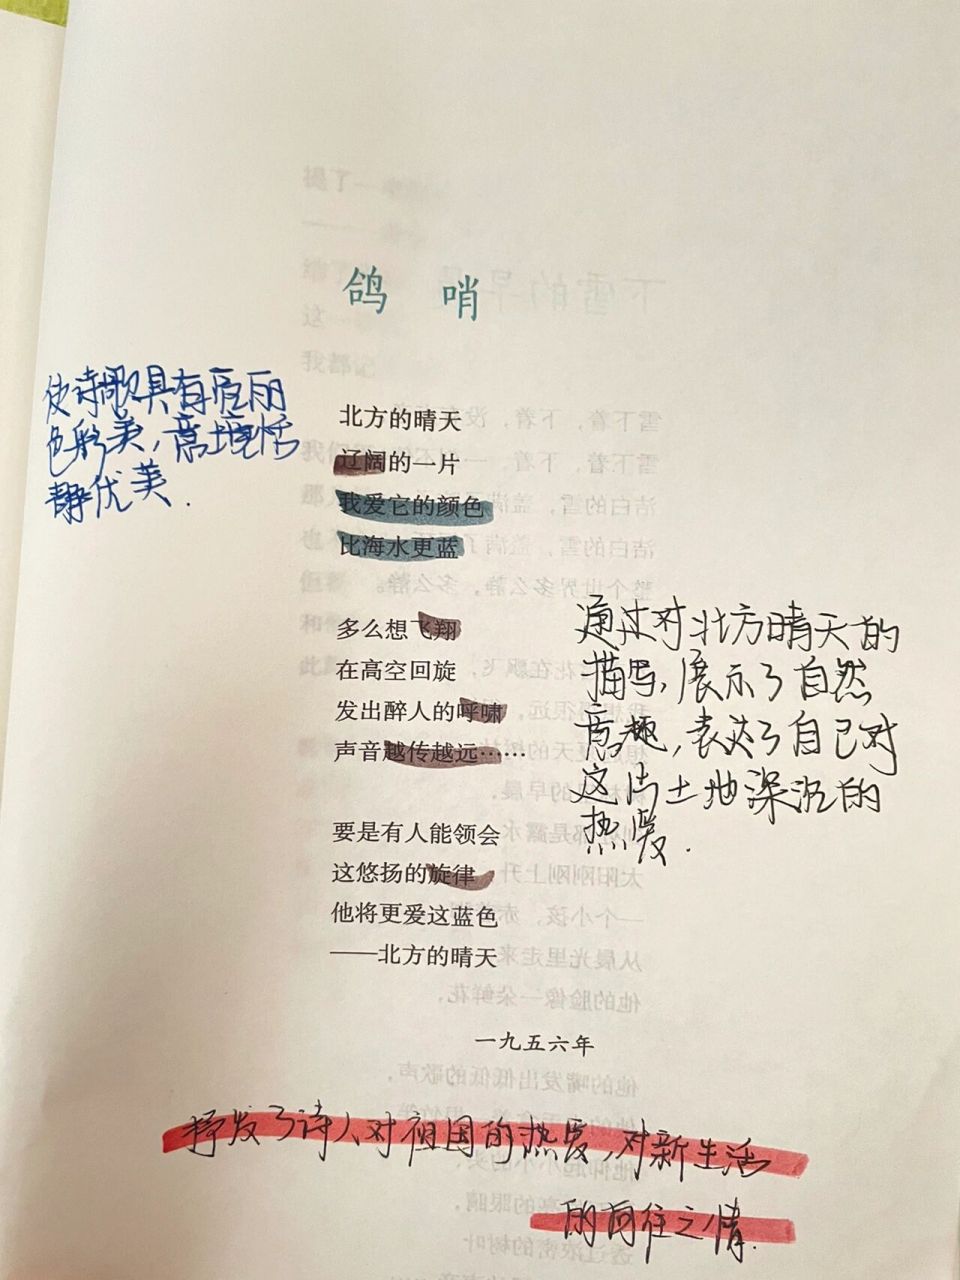 鸽 哨
使诗歌具有丽
色彩美,意境恬
静优美.
北方的晴天
辽阔的一片
我爱它的颜色
比海水更蓝
多么想飞翔
在高空回旋
发出醉人的呼啸
声音越传越远……
通过对北方晴天的
描写,展示了自然
意趣,表达了自己对
这片土地深沉的
热爱.
要是有人能领会
这悠扬的旋律
他将更爱这蓝色
——北方的晴天
一九五六年
抒发了诗人对祖国的热爱,对新生活
的向往之情.